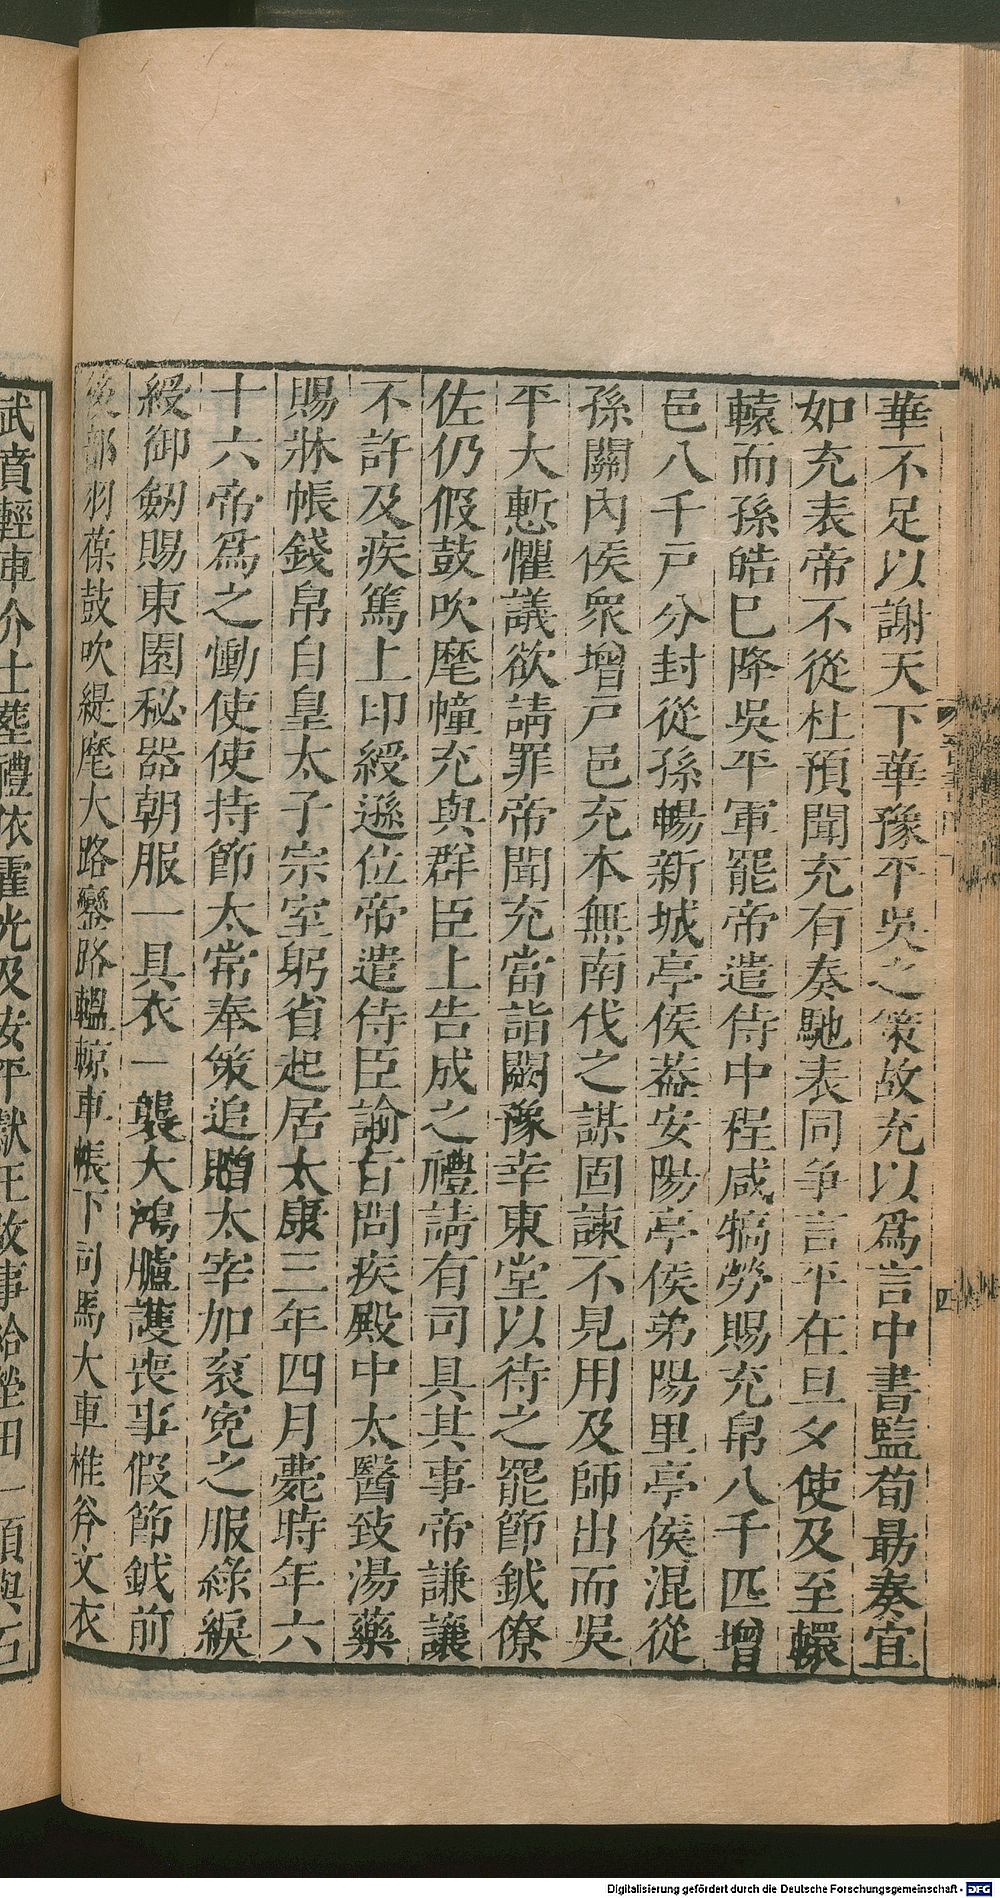 華不足以謝天下華豫平吳之策故充以爲言中書監荀勗奏宜
如充表帝不從杜預聞充有奏馳表同爭言平在旦夕使及至轘
轅而孫皓已降吳平軍罷帝遣侍中程咸犒勞賜充帛八千匹增
邑八千戸分封從孫暢新城亭侯葢安陽亭侯弟陽里亭侯混從
孫關內侯衆增戸邑充本無南伐之謀固諫不見用及師出而吳
平大慙懼議欲請罪帝聞充當詣闕豫幸東堂以待之罷節鉞僚
佐仍假鼓吹麾幢充與群臣上告成之禮請有司具其事帝謙讓
不許及疾篤上印綬遜位帝遣侍臣諭旨問疾殿中太醫致湯藥
賜牀帳錢帛自皇太子宗室躬省起居太康三年四月薨時年六
十六帝爲之慟使使持節太常奉策追贈太宰加袞冕之服綠綟
綬御劒賜東園秘器朝服一具衣一襲大鴻臚護喪事假節鉞前
後部羽葆鼓吹緹麾大路鑾路轀輬車帳下司馬大車椎斧文衣
武賁輕車介士葬禮依霍光及安平獻王故事給塋田一頃與石
四
Digitalisierung gefördert durch die Deutsche Forschungsgemeinschaft - DFG